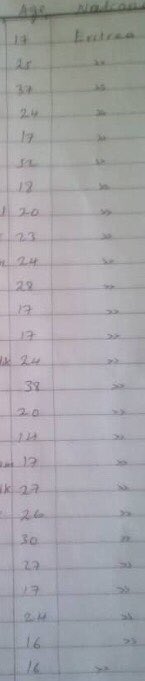 Age
17 Eritrea
25 »
37 »
24 »
17 »
32 »
18 »
20 »
23 »
24 »
28 »
17 »
17 »
24 »
38 »
20 »
14 »
17 »
27 »
26 »
30 »
27 »
17 »
24 »
16 »
16 »